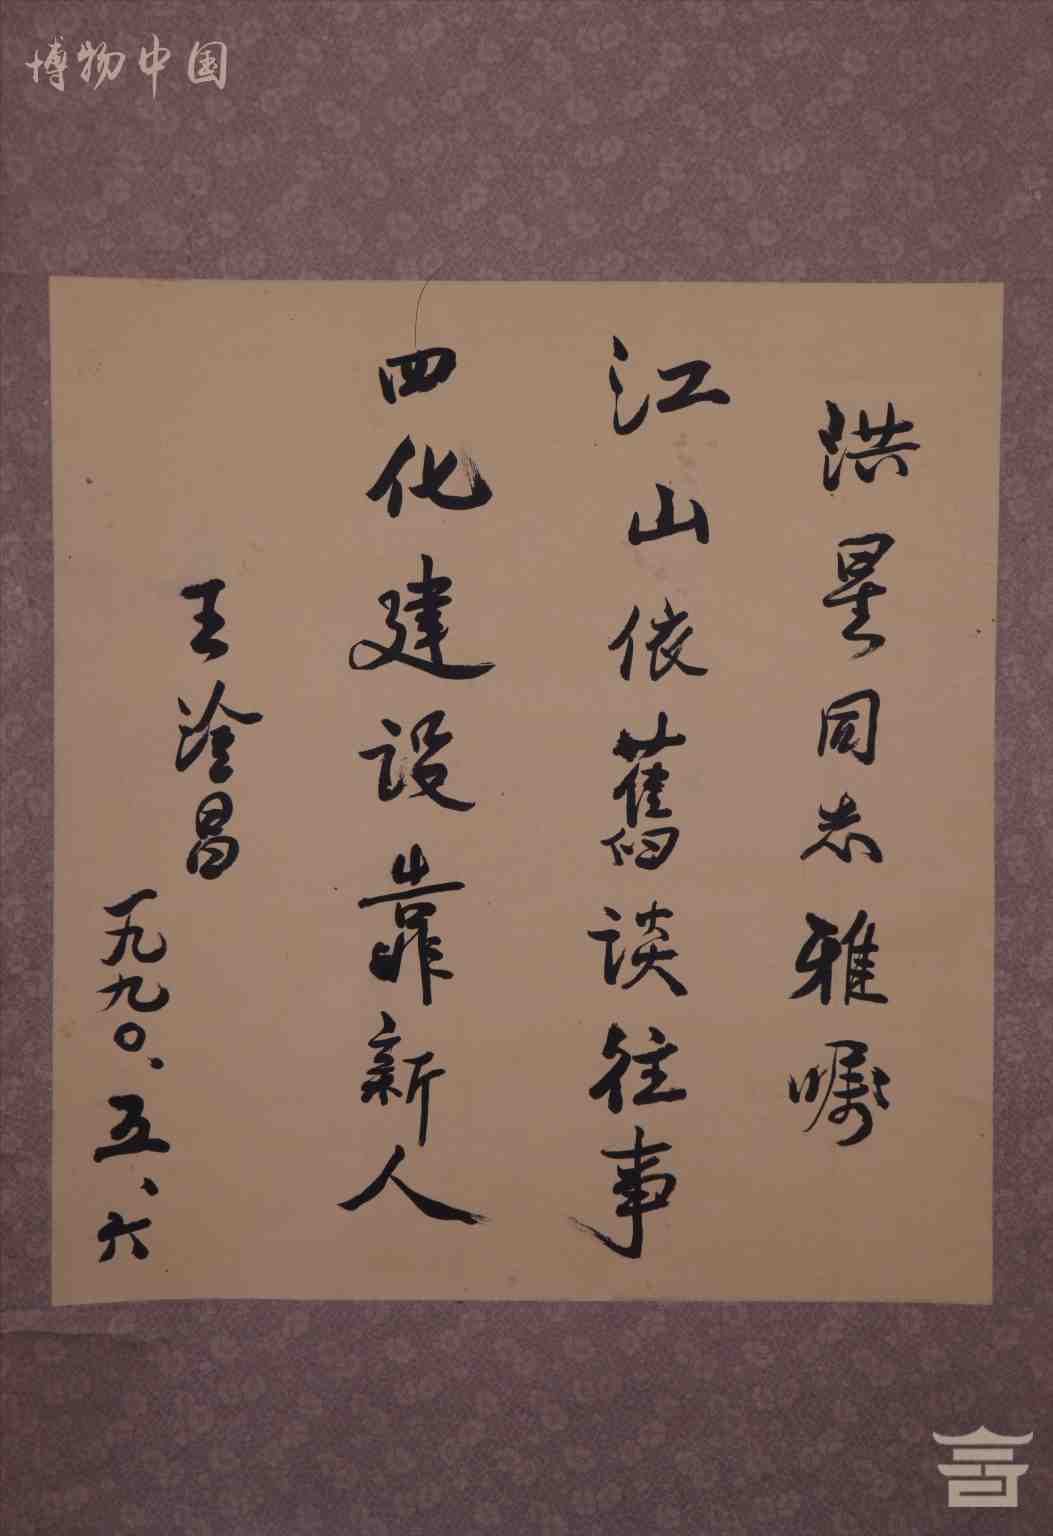 博物中国
洪星同志雅嘱
江山依舊谈往事
四化建设靠新人
王淦昌
一九九〇、五、六